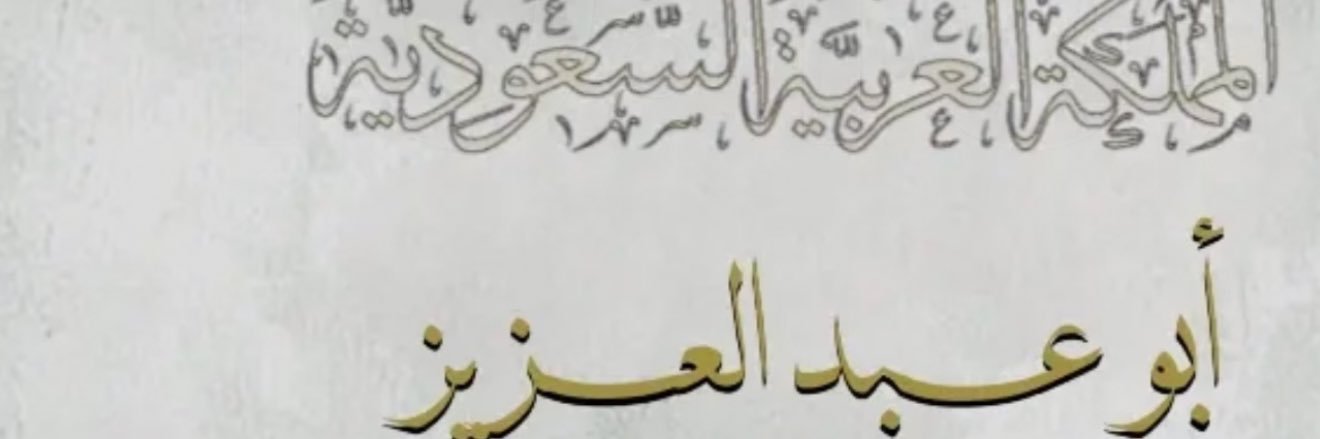 المملكة العربية السعودية
أبو عبد العزيز